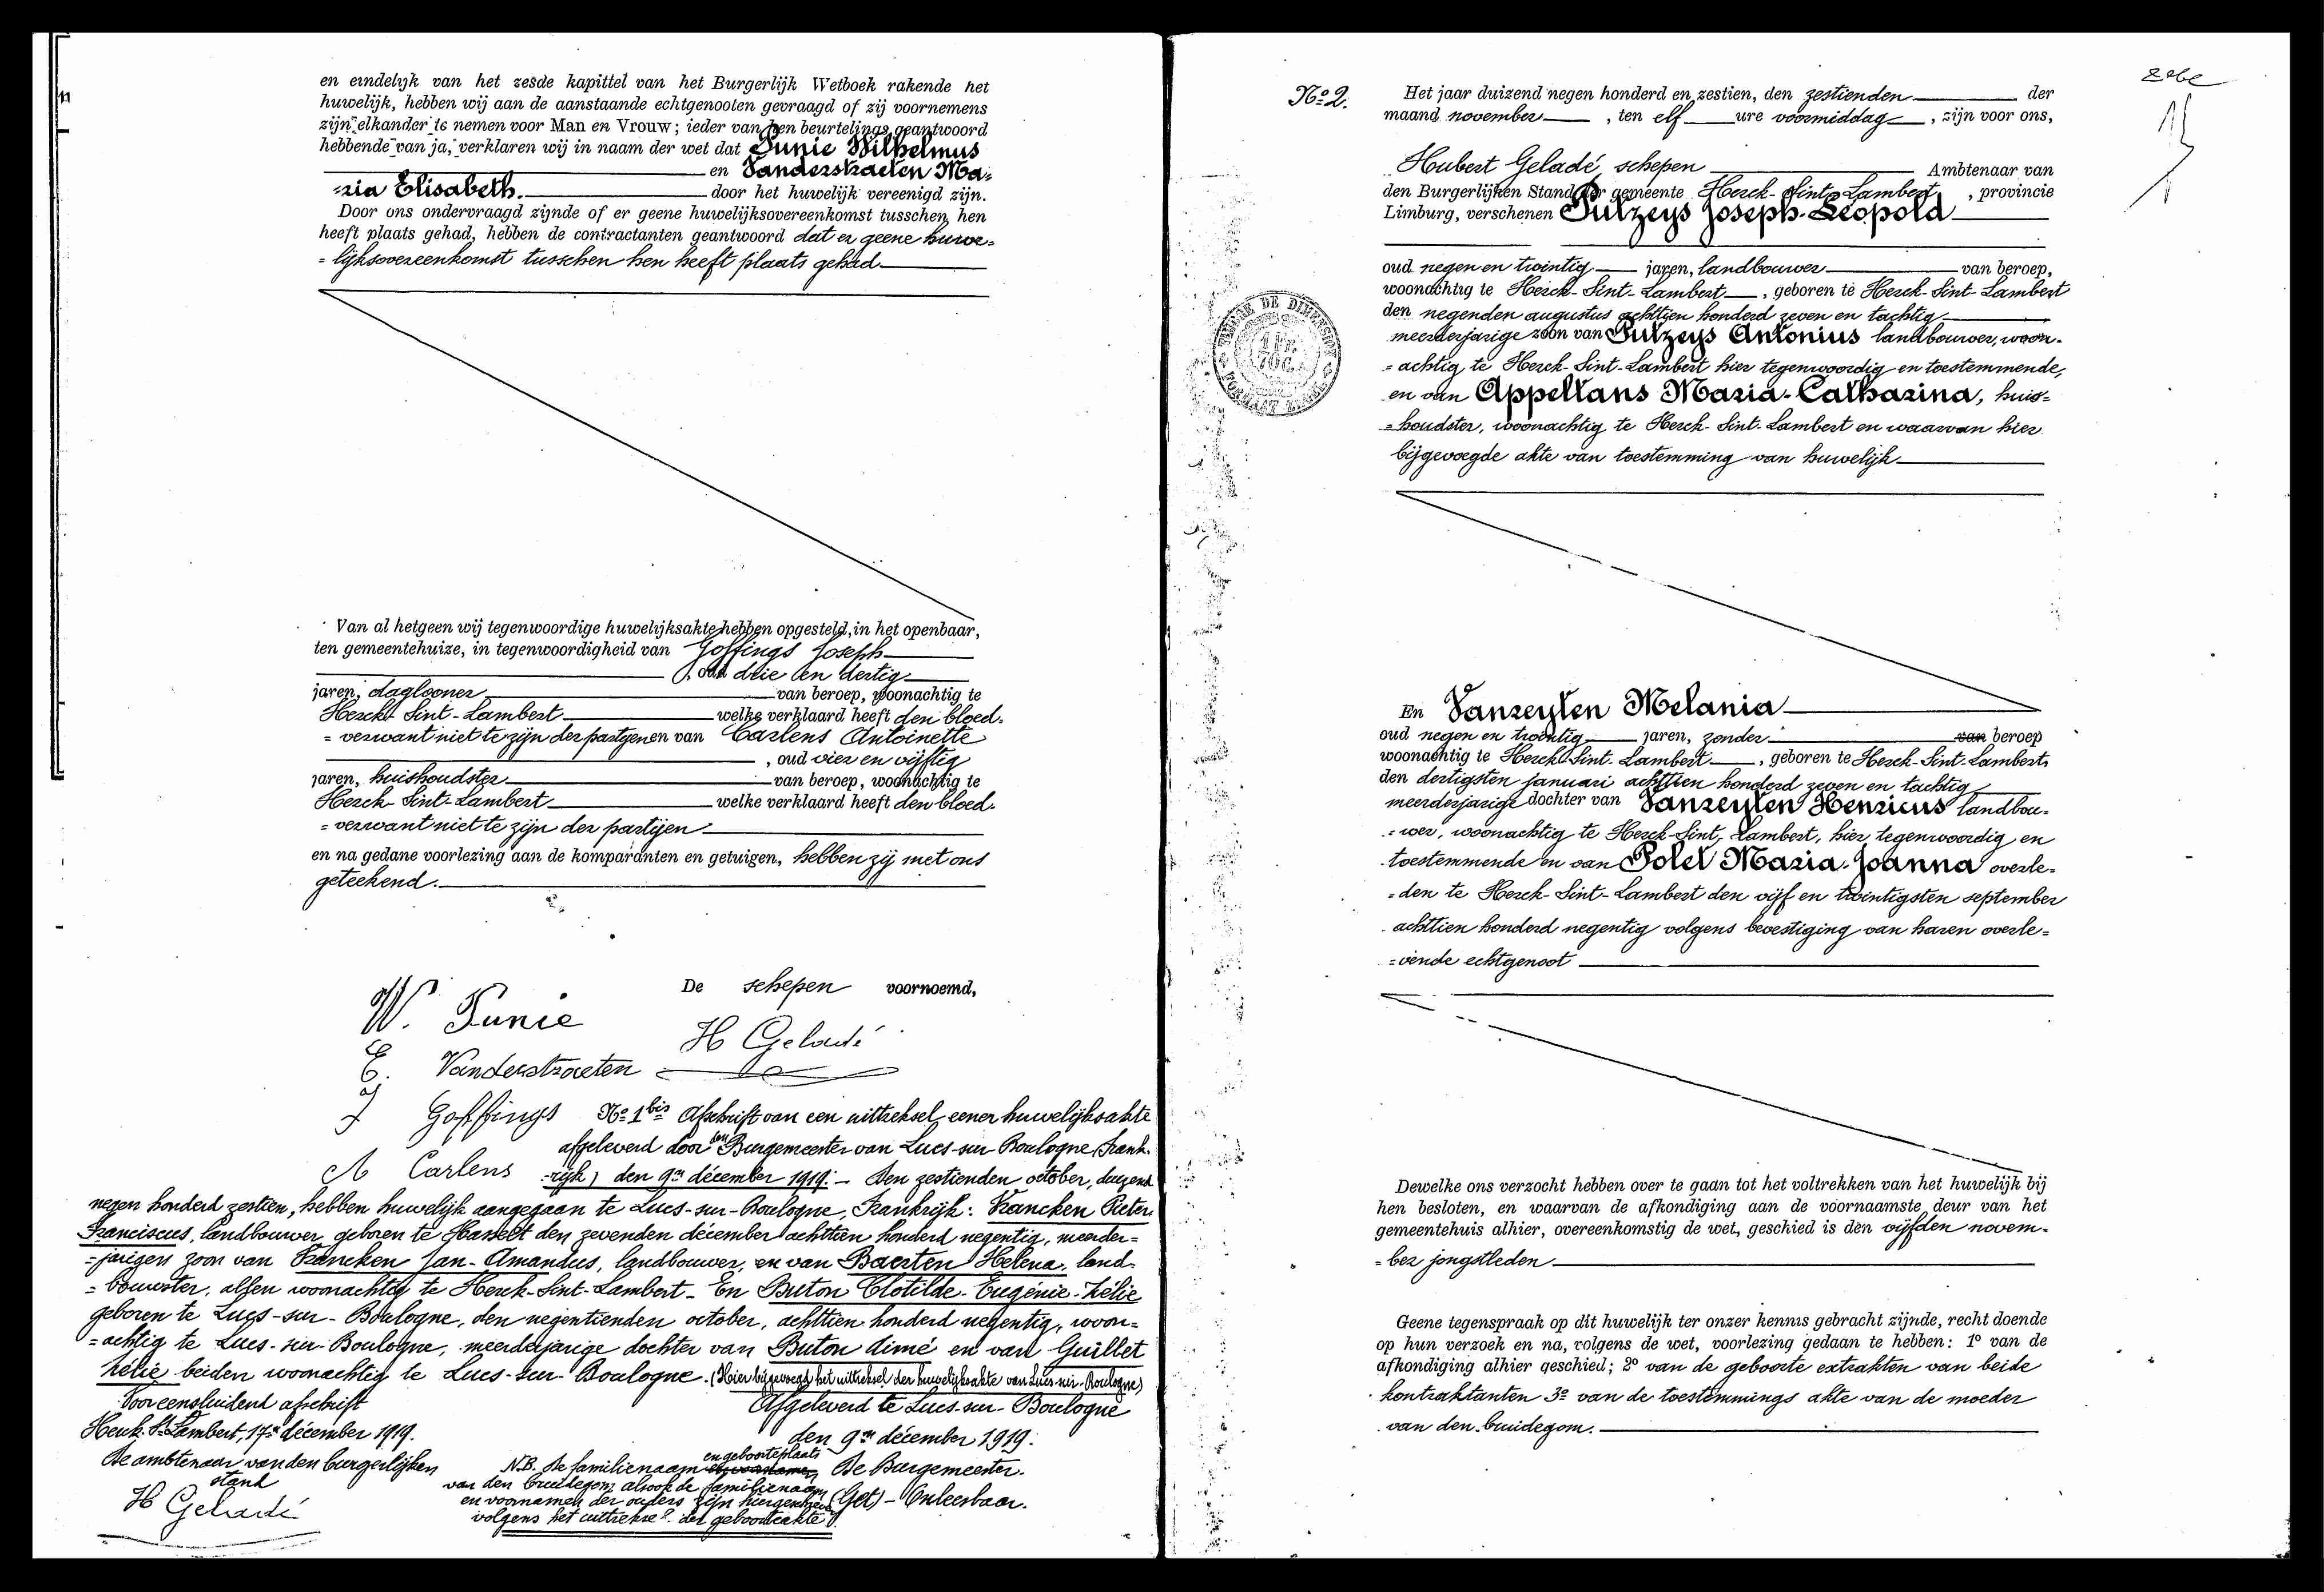 en eindelijk van het zesde kapittel van het Burgerlijk Wetboek rakende het
huwelijk, hebben wij aan de aanstaande echtgenooten gevraagd of zij voornemens
zijn elkander te nemen voor Man en Vrouw; ieder van hen beurtelings geantwoord
hebbende van ja, verklaren wij in naam der wet dat Punie Wilhelmus
en Vanderstraeten Ma=
=ria Elisabeth. door het huwelijk vereenigd zijn.
Door ons ondervraagd zijnde of er geene huwelijksovereenkomst tusschen hen
heeft plaats gehad, hebben de contractanten geantwoord dat er geene huwe=
=lijksovereenkomst tusschen hen heeft plaats gehad
Van al hetgeen wij tegenwoordige huwelijksakte hebben opgesteld, in het openbaar,
ten gemeentehuize, in tegenwoordigheid van Goffings Joseph
, oud drie en dertig
jaren, daglooner van beroep, woonachtig te
Herck-Sint-Lambert welke verklaard heeft den bloed=
=verwant niet te zijn der partijen en van Carlens Antoinette
, oud vier en vijftig
jaren, huishoudster van beroep, woonachtig te
Herck-Sint-Lambert welke verklaard heeft den bloed=
=verwant niet te zijn der partijen
en na gedane voorlezing aan de komparanten en getuigen, hebben zij met ons
geteekend.
De schepen voornoemd,
W. Punie
H Geladé
E. Vanderstraeten
J Goffings
A Carlens
No 1bis Afschrift van een uittreksel eener huwelijksakte
afgeleverd door den Burgemeester van Lucs-sur-Boulogne (Frank=
=rijk) den 9en décember 1919. — Den zestienden october, duizend
negen honderd zestien, hebben huwelijk aangegaan te Lucs-sur-Boulogne, Frankrijk: Francken Pieter
Franciscus, landbouwer, geboren te Hasselt den zevenden décember achttien honderd negentig, meerder=
=jarigen zoon van Francken Jan-Amandus, landbouwer, en van Baerten Helena, land=
=bouwster, allen woonachtig te Herck-Sint-Lambert - En Buton Clotilde-Eugénie-Zélie
geboren te Lucs-sur-Boulogne, den negentienden october, achttien honderd negentig, woon=
=achtig te Lucs-sur-Boulogne, meerderjarige dochter van Buton Aimé en van Guillet
Zélie beiden woonachtig te Lucs-sur-Boulogne. (Hier bijgevoegd het uittreksel der huwelijksakte van Lucs-sur-Boulogne)
Voor eensluidend afschrift
Herck-St-Lambert, 17en décember 1919.
De ambtenaar van den burgerlijken
stand
H Geladé
Afgeleverd te Lucs-sur-Boulogne
den 9en décember 1919.
De Burgemeester.
(Get) - Onleesbaar.
en geboorteplaats
N.B. de familienaam en voornamen
van den bruidegom, alsook de familienaam
en voornamen der ouders zijn hier geschreven
volgens het uittreksel der geboorteakte.
No 2.
Het jaar duizend negen honderd en zestien, den zestienden der
maand november, ten elf ure voormiddag, zijn voor ons,
Hubert Geladé, schepen Ambtenaar van
den Burgerlijken Stand der gemeente Herck-Sint-Lambert, provincie
Limburg, verschenen Putzeys Joseph-Leopold
oud negen en twintig jaren, landbouwer van beroep,
woonachtig te Herck-Sint-Lambert, geboren te Herck-Sint-Lambert
den negenden augustus achttien honderd zeven en tachtig
meerderjarige zoon van Putzeys Antonius landbouwer, woon=
=achtig te Herck-Sint-Lambert hier tegenwoordig en toestemmende,
en van Appeltans Maria-Catharina, huis=
=houdster, woonachtig te Herck-Sint-Lambert en waarvan hier
bijgevoegde akte van toestemming van huwelijk
En Vanreyten Melania
oud negen en twintig jaren, zonder van beroep
woonachtig te Herck-Sint-Lambert, geboren te Herck-Sint-Lambert
den dertigsten januari achttien honderd zeven en tachtig
meerderjarige dochter van Vanreyten Henricus landbou=
=wer, woonachtig te Herck-Sint-Lambert, hier tegenwoordig en
toestemmende en van Polet Maria-Joanna overle=
=den te Herck-Sint-Lambert den vijf en twintigsten september
achttien honderd negentig volgens bevestiging van haren overle=
=vende echtgenoot
Dewelke ons verzocht hebben over te gaan tot het voltrekken van het huwelijk bij
hen besloten, en waarvan de afkondiging aan de voornaamste deur van het
gemeentehuis alhier, overeenkomstig de wet, geschied is den vijfden novem=
=ber jongstleden
Geene tegenspraak op dit huwelijk ter onzer kennis gebracht zijnde, recht doende
op hun verzoek en na, volgens de wet, voorlezing gedaan te hebben: 1º van de
afkondiging alhier geschied; 2º van de geboorte extrakten van beide
kontraktanten 3º van de toestemmings akte van de moeder
van den bruidegom.